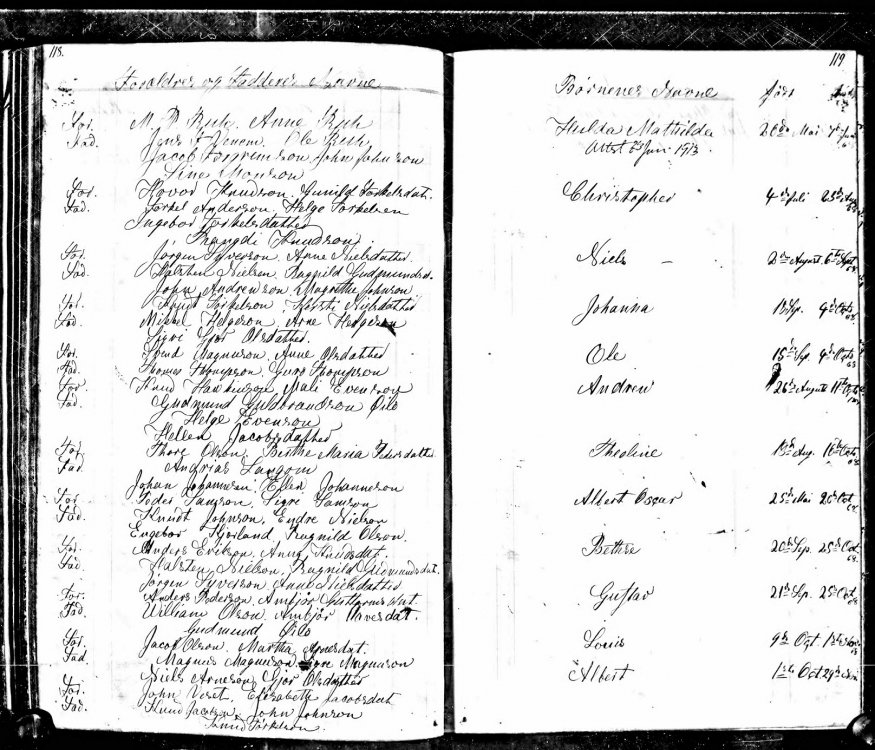 118.
Foraldres og Fadderes Navne
For. M. P. Ruh, Anne Ruh
Fad. Jens Ole Ruh
Jacob John Johnson
Sine Monson
For. Hovor Knudson, Gunild Torkelsdat.
Fad. Torkel Anderson, Helge Torkelsen
Ingebor Torkelsdatter
Knudson
For. Jørgen Syverson, Anne Nielsdatter
Fad. Halsten Nielsen, Ragnild Gudmundsd.
John Andrenson Magrethe Johnson
For. Knudt Torkelson, Kjersti Nielsdatter
Fad. Mikkel Helgeson, Arne Helgeson
Sigri Gjør Olsdatter.
For. Knud Magnuson, Anne Olsdatter
Fad. Thomas Thompson, Guro Thompson
For. Knud Haakenson, Mali Evenson
Fad. Gudmund Guldbrandson Oilo
Helge Evenson
Hellen Jacobsdatter
For. Thore Olson, Berthe Maria Pedersdatter
Fad. Andrias Langom
Johan Johanneson, Ellen Johanneson
For. Peder Samson, Sigri Samson
Fad. Knudt Johnson, Endre Nielson
Engebor Fjorland, Ragnild Olson.
For. Anders Erikson, Anne Knudsdat.
Fad. Halsten Nielson, Ragnild Gudmundsdat.
Jørgen Syverson, Anne Nielsdatter
For. Anders Pederson, Ambjør Guttormsdat.
Fad. William Olson, Ambjør Havesdat.
Gudmund Oilo
For. Jacob Olson, Martha Arnesdat.
Fad. Magnus Magnuson, Sigri Magnuson
Niels Arneson, Gjør Olsdatter
For. John Veset, Elizabeth Jacobsdat
Fad. Knud Jacobson, John Johnson
Knud Torkelson.
119
Børnenes Navne født
Hulda Mathilda 26de Mai
Attst Juni 1913
Christopher 4de Juli 23de Aug
Niels — 2den August 6te Sept
Johanna 1ste Sp. 9de Octo
Ole 15de Sep. 9de Octo
Andrew 26de August 11te Octo
Theoline 13de Aug. 16de Octo
Albert Oscar 25de Mai 20de Oct
Bethse 20de Sep. 25de Oct
Gustav 21de Sp. 25de Oct
Louis 9de Oct 1ste
Albert 1ste Oct 29de